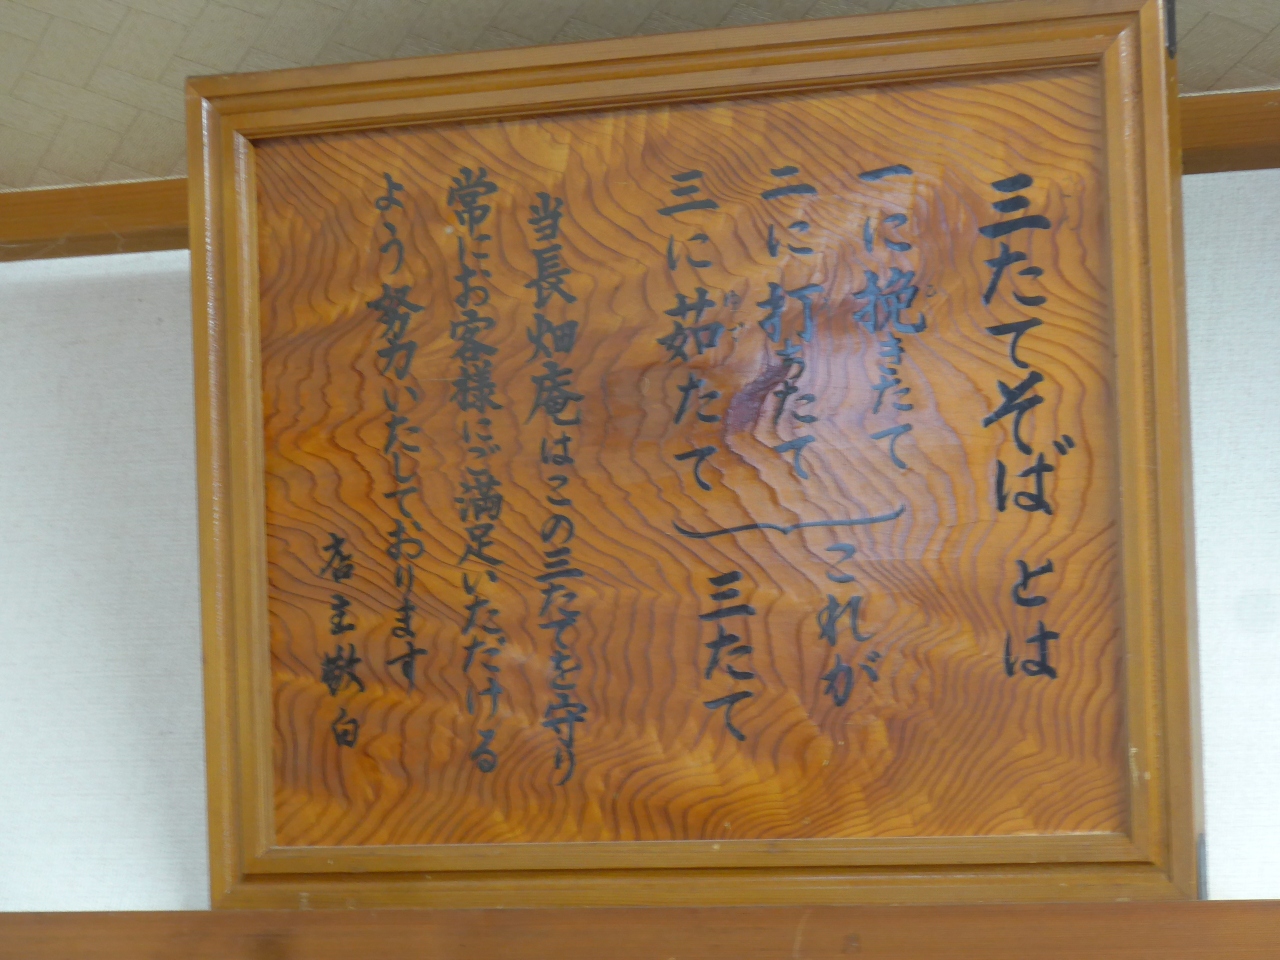 三たてそば とは
一に挽きたて
二に打ちたて
三に茹たて
これが
三たて
当長畑庵はこの三たてを守り
常にお客様にご満足いただける
よう努力いたしております
店主敬白